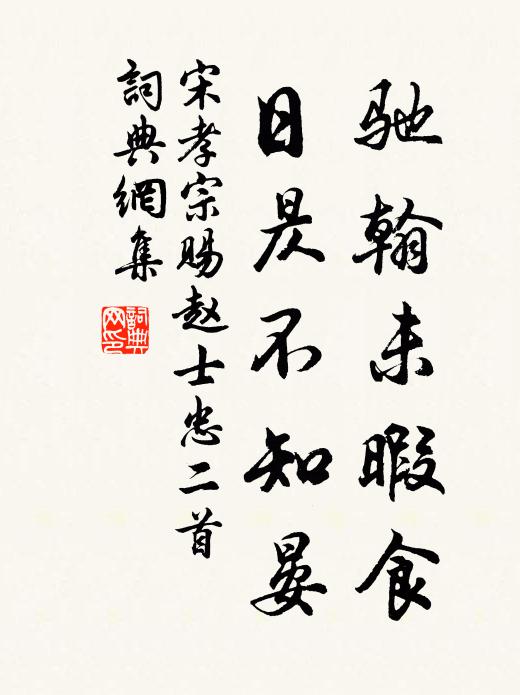 驰翰未暇食
日昃不知晏
宋孝宗賜赵士忠二首
詞典網集
詞典网印